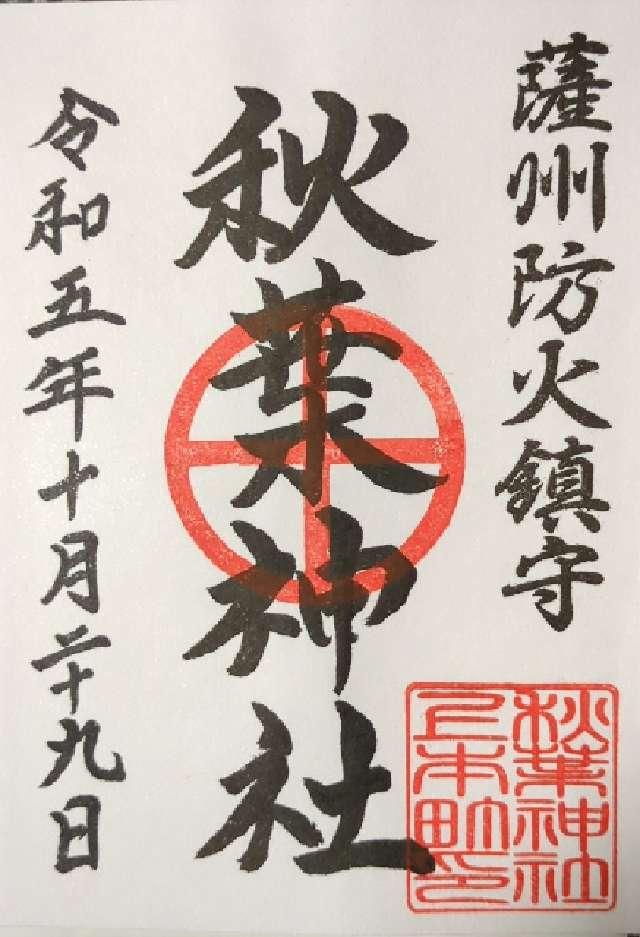 薩州防火鎮守
秋葉神社
令和五年十月二十九日
秋葉神社
上本町印